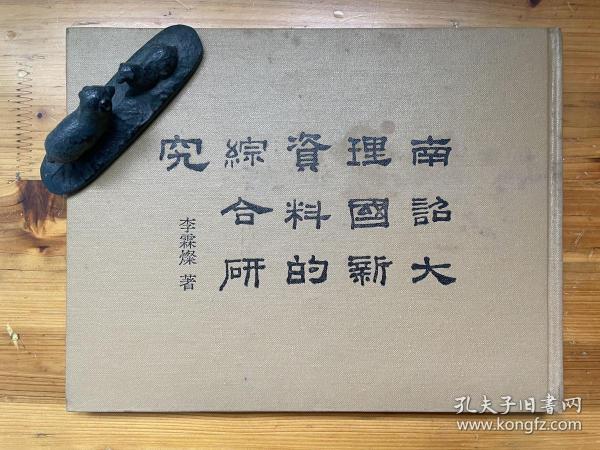 南詔大
理國新
資料的
綜合研
究
李霖燦 著
孔夫子旧书网
www.kongfz.com